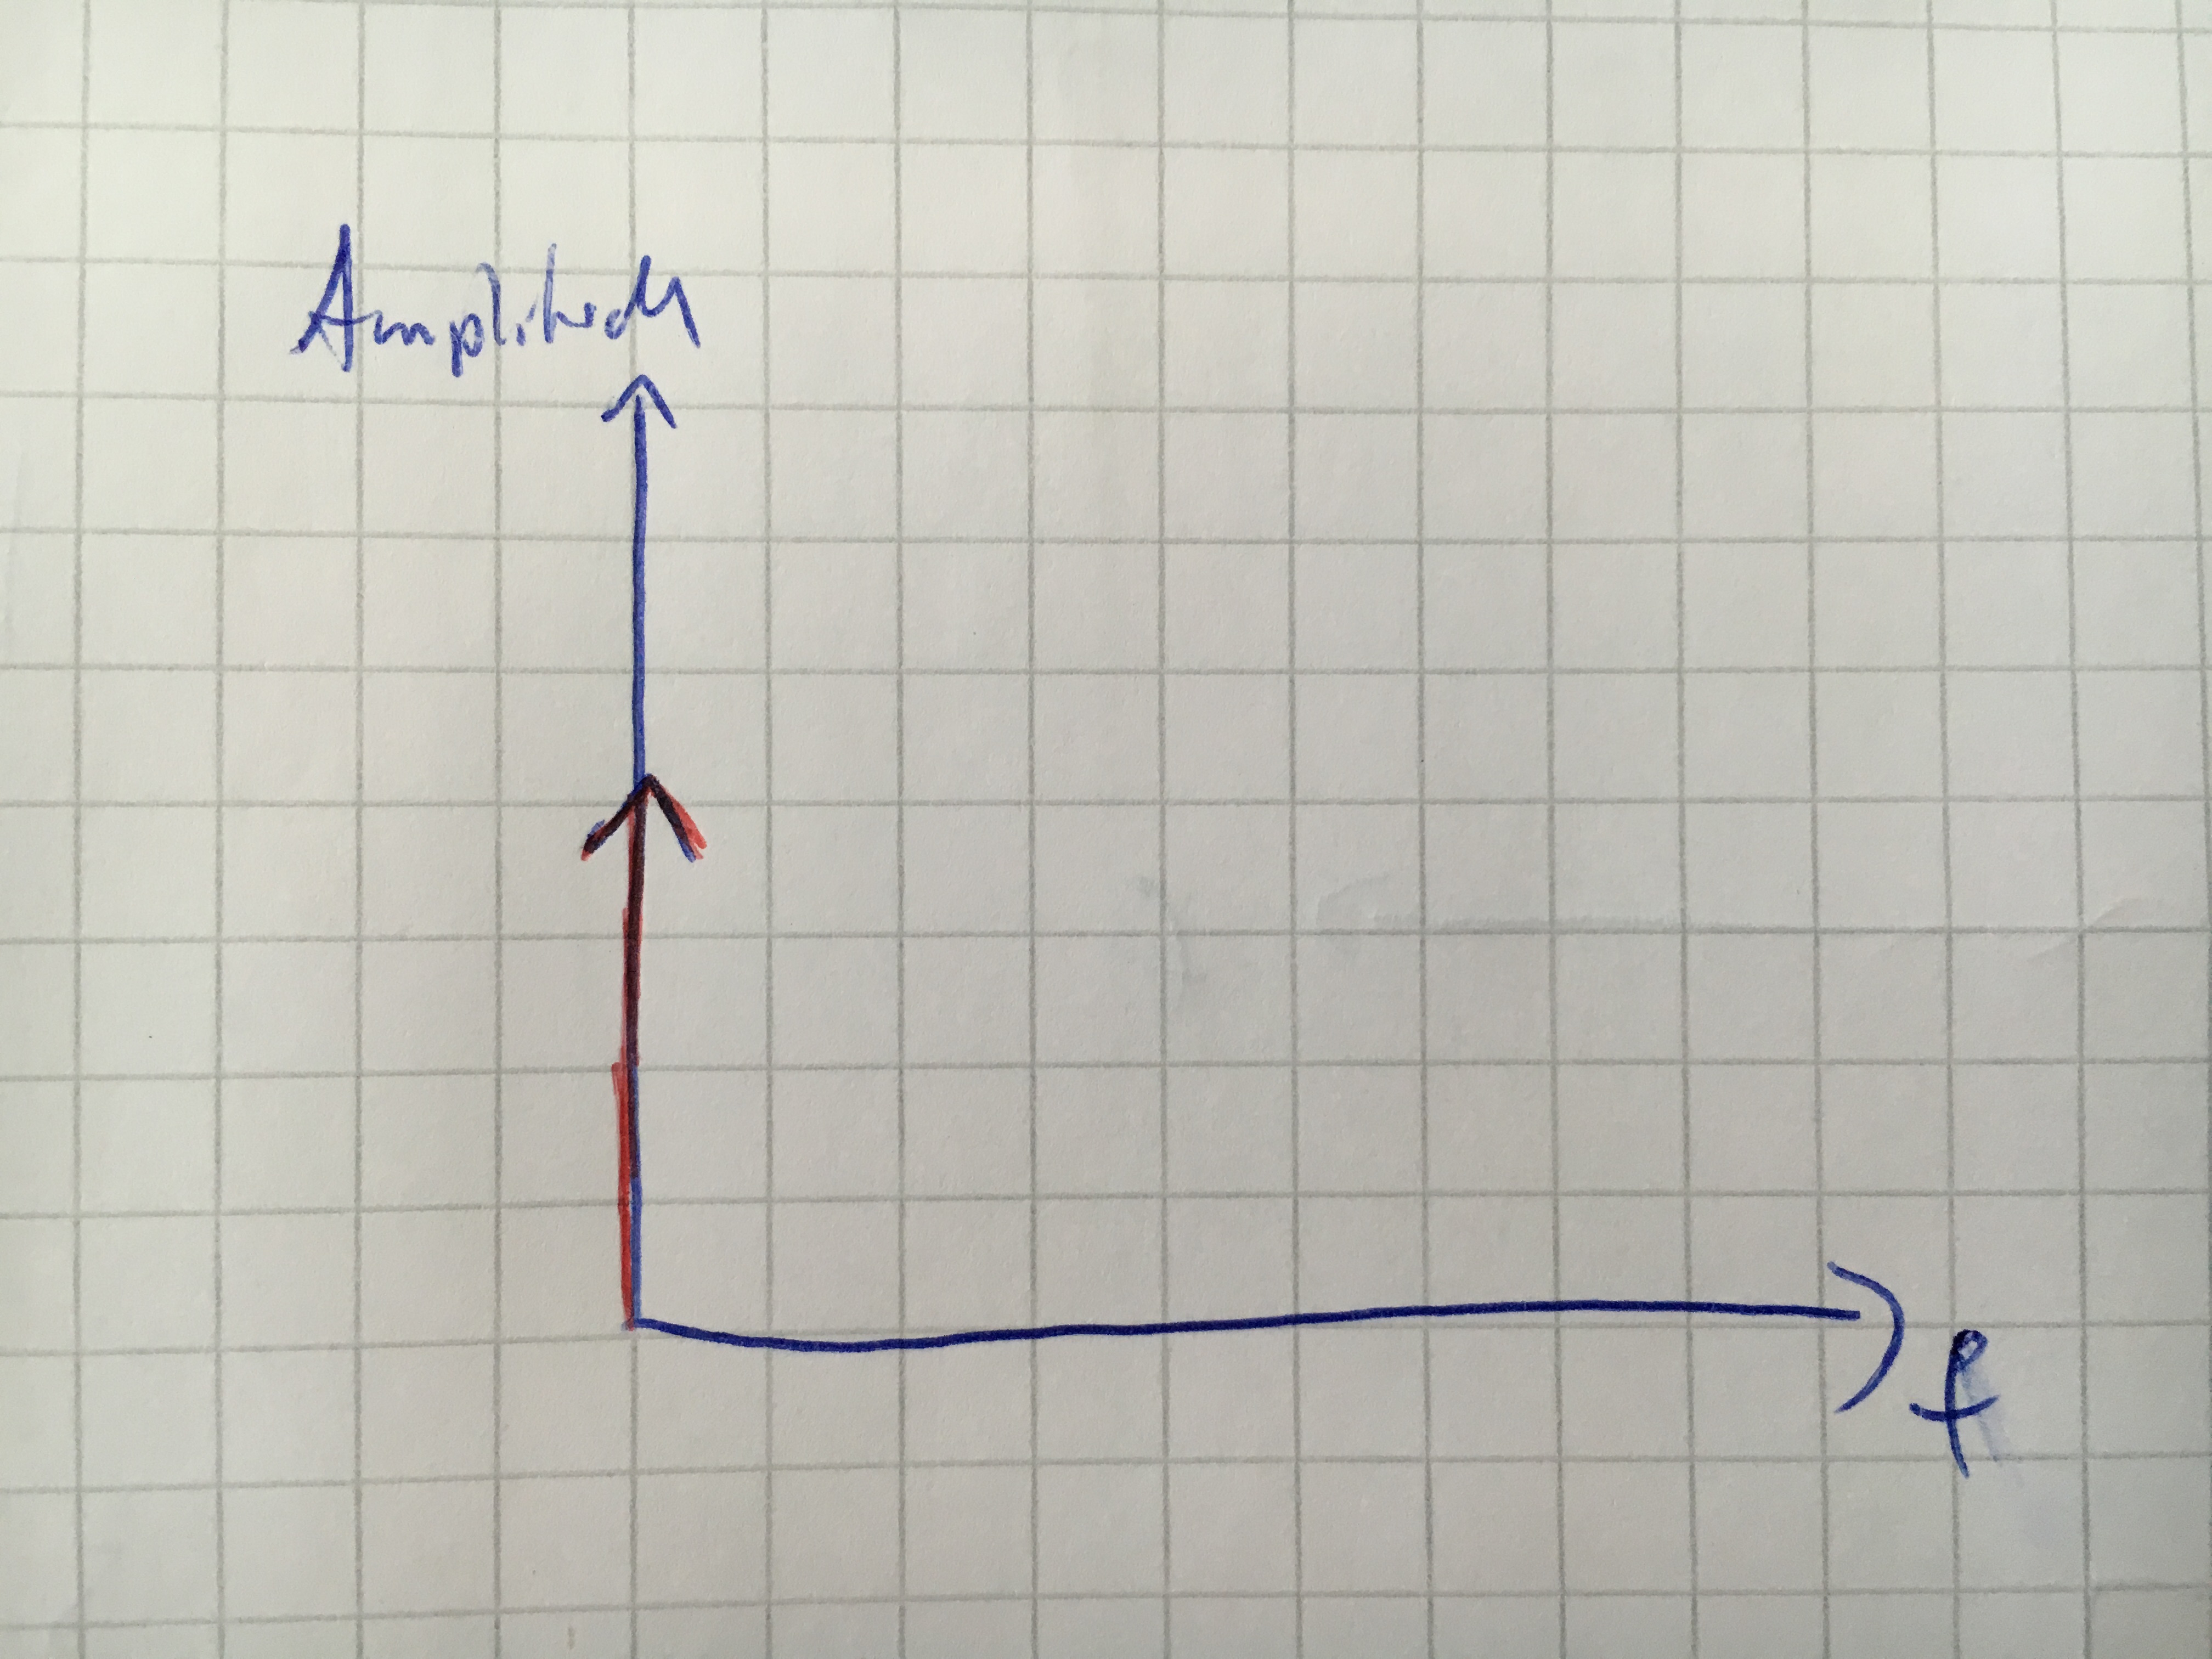 Amplitude
f